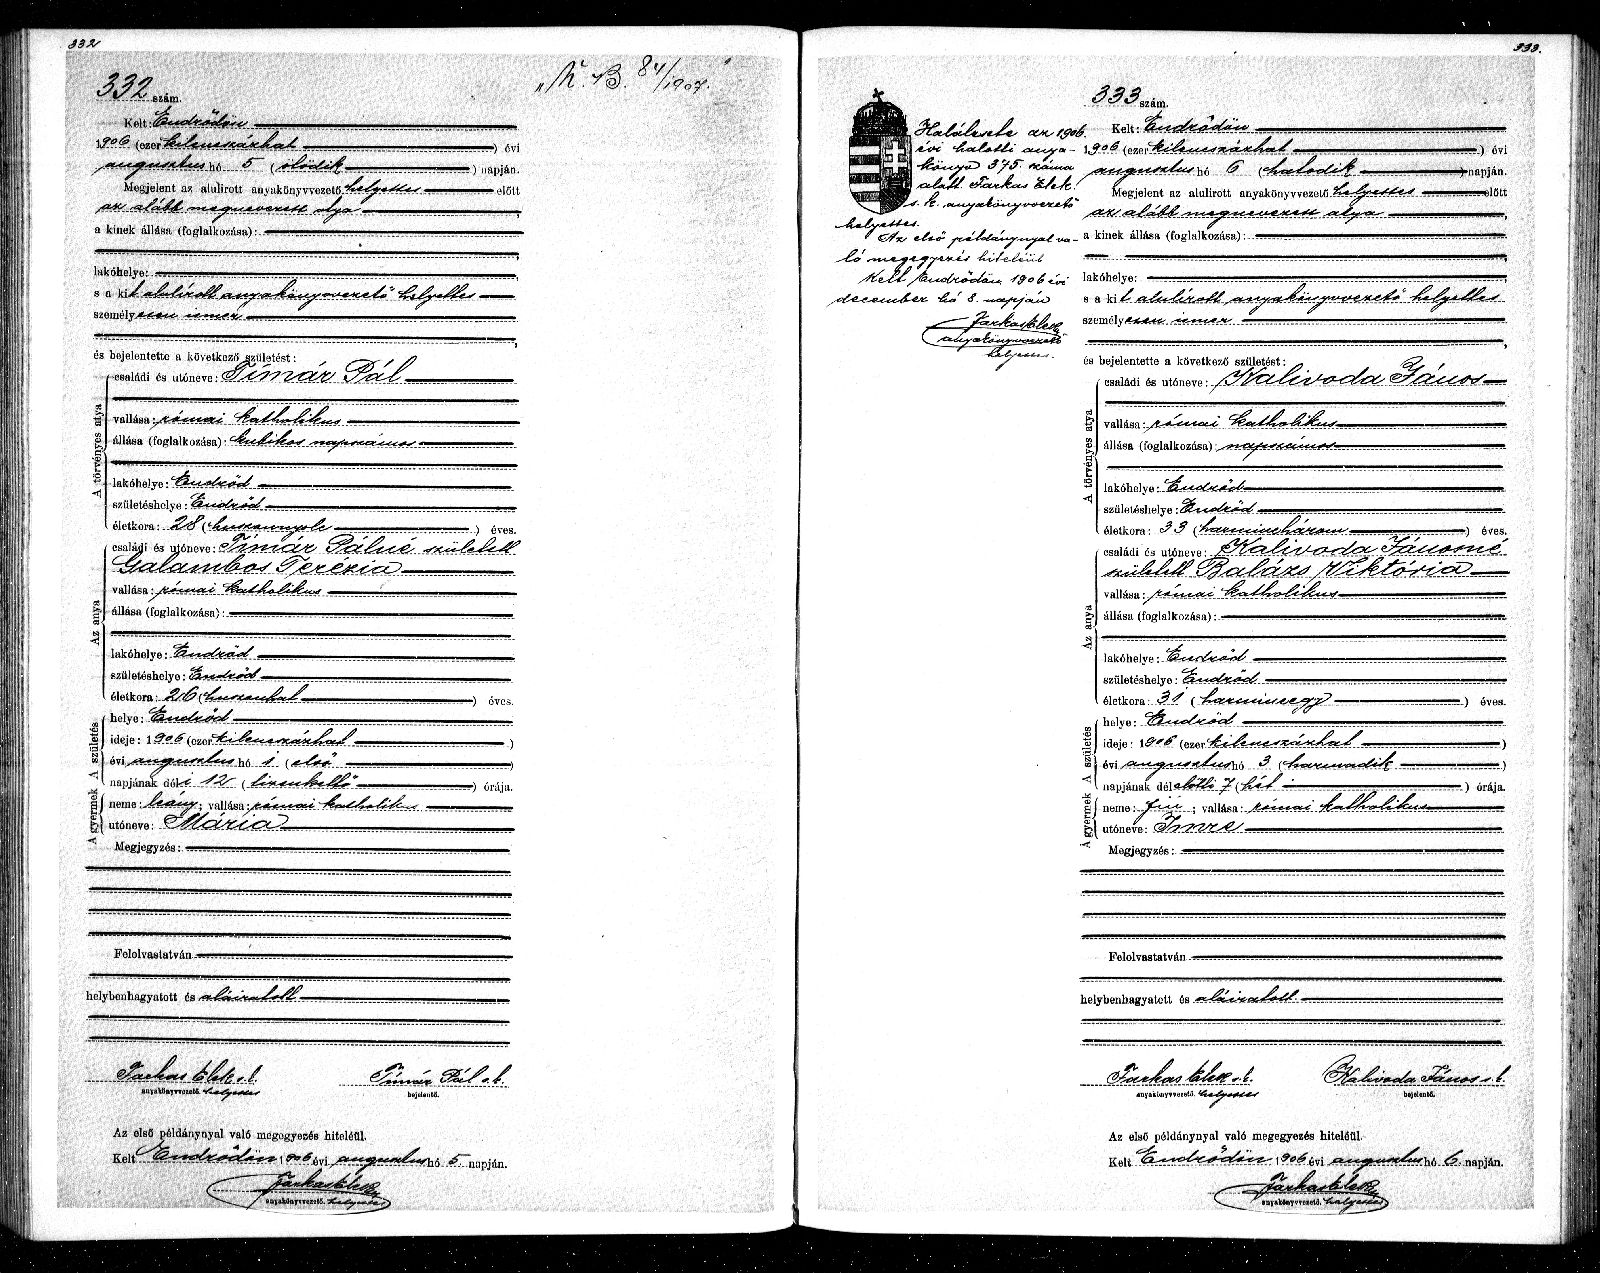 332
332 szám.
„N. B. 84/1907."
Kelt: Endrődön
1906 (ezer kilencszázhat ) évi
augusztus hó 5 (ötödik ) napján.
Megjelent az alulirott anyakönyvvezető helyettes előtt
az alább megnevezett atya ,
a kinek állása (foglalkozása):
,
lakóhelye: ,
s a kit alulírott anyakönyvvezető helyettes
személyesen ismer
,
és bejelentette a következő születést:
A törvényes atya
családi és utóneve: Tímár Pál
vallása: római katholikus
állása (foglalkozása): kubikos napszámos
lakóhelye: Endrőd
születéshelye: Endrőd
életkora: 28 (huszonnyolc ) éves.
Az anya
családi és utóneve: Tímár Pálné született
Galambos Terézia
vallása: római katholikus
állása (foglalkozása):
lakóhelye: Endrőd
születéshelye: Endrőd
életkora: 26 (huszonhat ) éves.
A születés
helye: Endrőd
ideje: 1906 (ezer kilencszázhat )
évi augusztus hó 1 (első )
napjának déli 12 (tizenkettő ) órája.
A gyermek
neme: leány; vallása: római katholikus
utóneve: Mária
Megjegyzés:
Felolvastatván
helybenhagyatott és aláíratott
Farkas Elek s. k. Tímár Pál s. k.
anyakönyvvezető. helyettes bejelentő.
Az első példánynyal való megegyezés hiteléül.
Kelt Endrődön 1906 évi augusztus hó 5 napján.
Farkas Elek
anyakönyvvezető. helyettes
333.
333 szám.
Halálesete az 1906.
évi halotti anya-
könyv 375 száma
alatt. Farkas Elek
s. k. anyakönyvvezető
helyettes.
Az első példánynyal va-
ló megegyezés hiteléül
Kelt Endrődön 1906 évi
december hó 8. napján
Farkas Elek
anyakönyvvezető
helyettes.
Kelt: Endrődön
1906 (ezer kilencszázhat ) évi
augusztus hó 6 (hatodik ) napján.
Megjelent az alulirott anyakönyvvezető helyettes előtt
az alább megnevezett atya ,
a kinek állása (foglalkozása):
,
lakóhelye: ,
s a kit alulírott anyakönyvvezető helyettes
személyesen ismer
,
és bejelentette a következő születést:
A törvényes atya
családi és utóneve: Kalivoda János
vallása: római katholikus
állása (foglalkozása): napszámos
lakóhelye: Endrőd
születéshelye: Endrőd
életkora: 33 (harminchárom ) éves.
Az anya
családi és utóneve: Kalivoda Jánosné
született Balázs Viktória
vallása: római katholikus
állása (foglalkozása):
lakóhelye: Endrőd
születéshelye: Endrőd
életkora: 31 (harmincegy ) éves.
A születés
helye: Endrőd
ideje: 1906 (ezer kilencszázhat )
évi augusztus hó 3 (harmadik )
napjának délelőtti 7 (hét ) órája.
A gyermek
neme: fiú; vallása: római katholikus
utóneve: Imre
Megjegyzés:
Felolvastatván
helybenhagyatott és aláíratott.
Farkas Elek s. k. Kalivoda János s. k.
anyakönyvvezető. helyettes bejelentő.
Az első példánynyal való megegyezés hiteléül.
Kelt Endrődön 1906 évi augusztus hó 6 napján.
Farkas Elek
anyakönyvvezető. helyettes